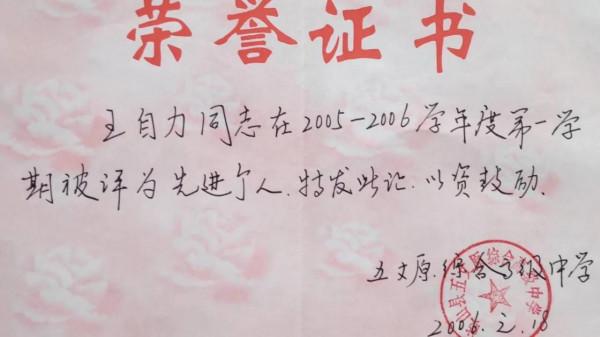 荣誉证书
王自力同志在2005-2006学年度第一学
期被评为先进个人.特发此证.以资鼓励.
五丈原综合高级中学
2006.2.18